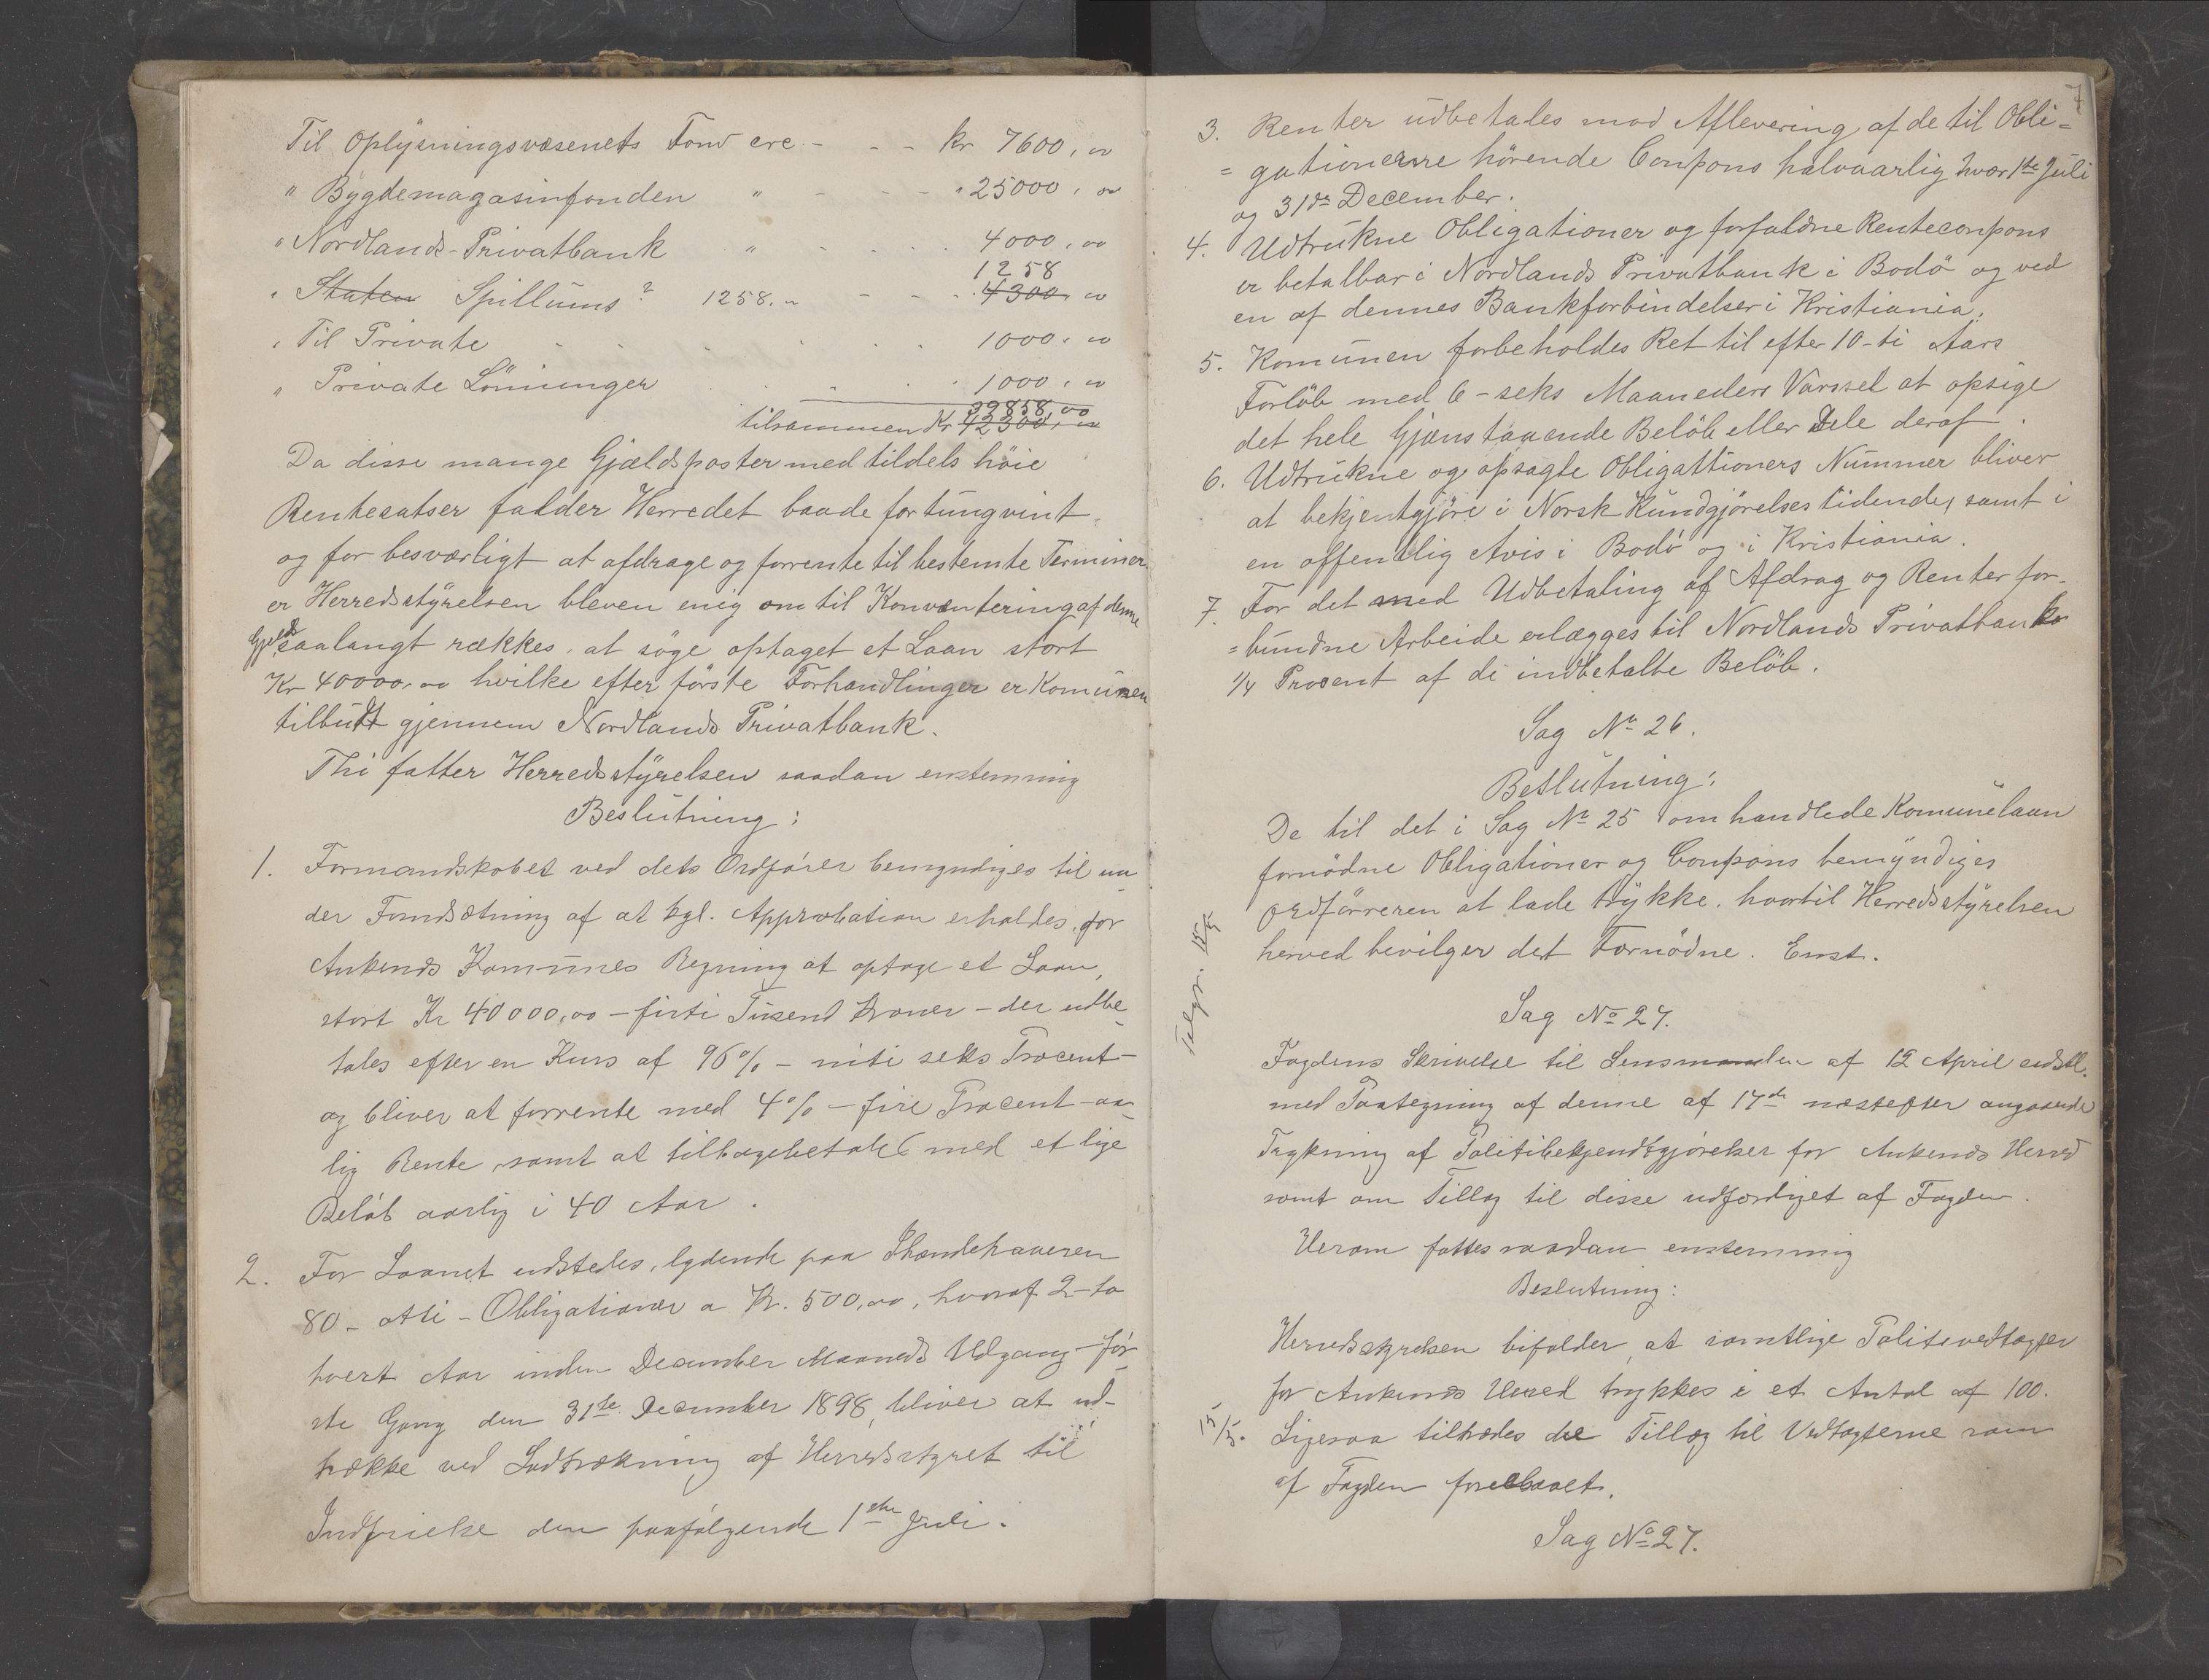 Til Oplysningsvæsenets Fond cre - - - kr 7600,00
" Bygdemagasinfonden " - - - " 25000,00
" Nordlands-Privatbank " - - - 4000,00
1258
" Staten Spillums? 1258.- - - - 4300,00
" Til Private - - - 1000,00
" Private Lönninger - - - 1000,00
39858,00
tilsammen Kr 42300,00
Da disse mange Gjældsposter med tildels höie
Rentesatser falder Herredet baade for tungvint
og for besværligt at afdrage og forrente til bestemte Terminer
er Herredsstyrelsen bleven enig om til Konventering af denne
Gjeld saalangt rækkes, at söge optaget et Laan stort
Kr 40000,00 hvilke efter förste Forhandlinger er Komunen
tilbudt gjennem Nordlands Privatbank.
Thi fatter Herredsstyrelsen saadan enstemmig
Beslutning:
1. Formandskabet ved dets Ordförer bemyndiges til un-
der Forudsætning af at kgl. Approbation erholdes, for
Ankenæs Komunes Regning at optage et Laan,
stort Kr 40000,00 - firti Tusend Kroner - der udbe-
tales efter en Kurs af 96% - niti seks Procent -
og bliver at forrente med 4% - fire Procent - aar-
lig Rente, samt at tilbagebetale med et lige
Beløb aarlig i 40 Aar.
2. For Laanet udstedes, lydende paa Ihændehaveren
80 - otti - Obligationer a Kr. 500,00, hvoraf 2 - to
hvert Aar inden December Maaneds Udgang - før-
ste Gang den 31te December 1898, bliver at ud-
trække ved Lodtrækning af Herredsstyret til
Indfrielse den paafølgende 1ste Juli.
7
3. Renter udbetales mod Aflevering af de til Obli=
= gationerne hörende Coupons halvaarlig hver 1ste Juli
og 31de December.
4. Udtrukne Obligationer og forfaldne Rentecoupons
er betalbar i Nordlands Privatbank i Bodö og ved
en af dennes Bankforbindelser i Kristiania.
5. Komunen forbeholdes Ret til efter 10-ti Aars
Forlöb med 6 - seks Maaneders Varssel at opsige
det hele Gjenstaaende Belöb eller Dele deraf.
6. Udtrukne og opsagte Obligattioners Nummer bliver
at bekjentgjöre i Norsk Kundgjörelsestidende, samt i
en offentlig Avis i Bodö og i Kristiania.
7. For det med Udbetaling af Afdrag og Renter for-
= bundne Arbeide erlægges til Nordlands Privatbank
1/4 Procent af de indbetalte Belöb.
Sag No 26.
Beslutning:
De til det i Sag No 25 omhandlede Komunelaan
fornödne Obligationer og Coupons bemyndiges
Ordförreren at lade trykke, hvortil Herredsstyrelsen
herved bevilger det Fornödne. Enst.
Telgr. 15/5
Sag No 27.
Fogdens Skrivelse til Lensmanden af 12 April sidstl.
med Paategning af denne af 17de næstefter angaaende
Trykning af Politibekjendtgjørelser for Ankenæs Herred
samt om Tillæg til disse udfærdiget af Fogden.
Herom fattes saadan enstemmig
Beslutning:
Herredsstyrelsen bifalder, at samtlige Politivedtægter
for Ankenæs Herred trykkes i et Antal af 100.
15/5. Ligesaa tiltrædes de Tillæg til Vedtægterne som
af Fogden foreslaaet.
Sag No 27.